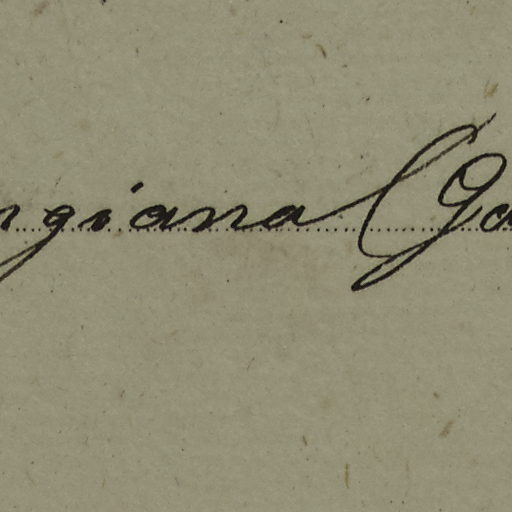 rgiana Ga